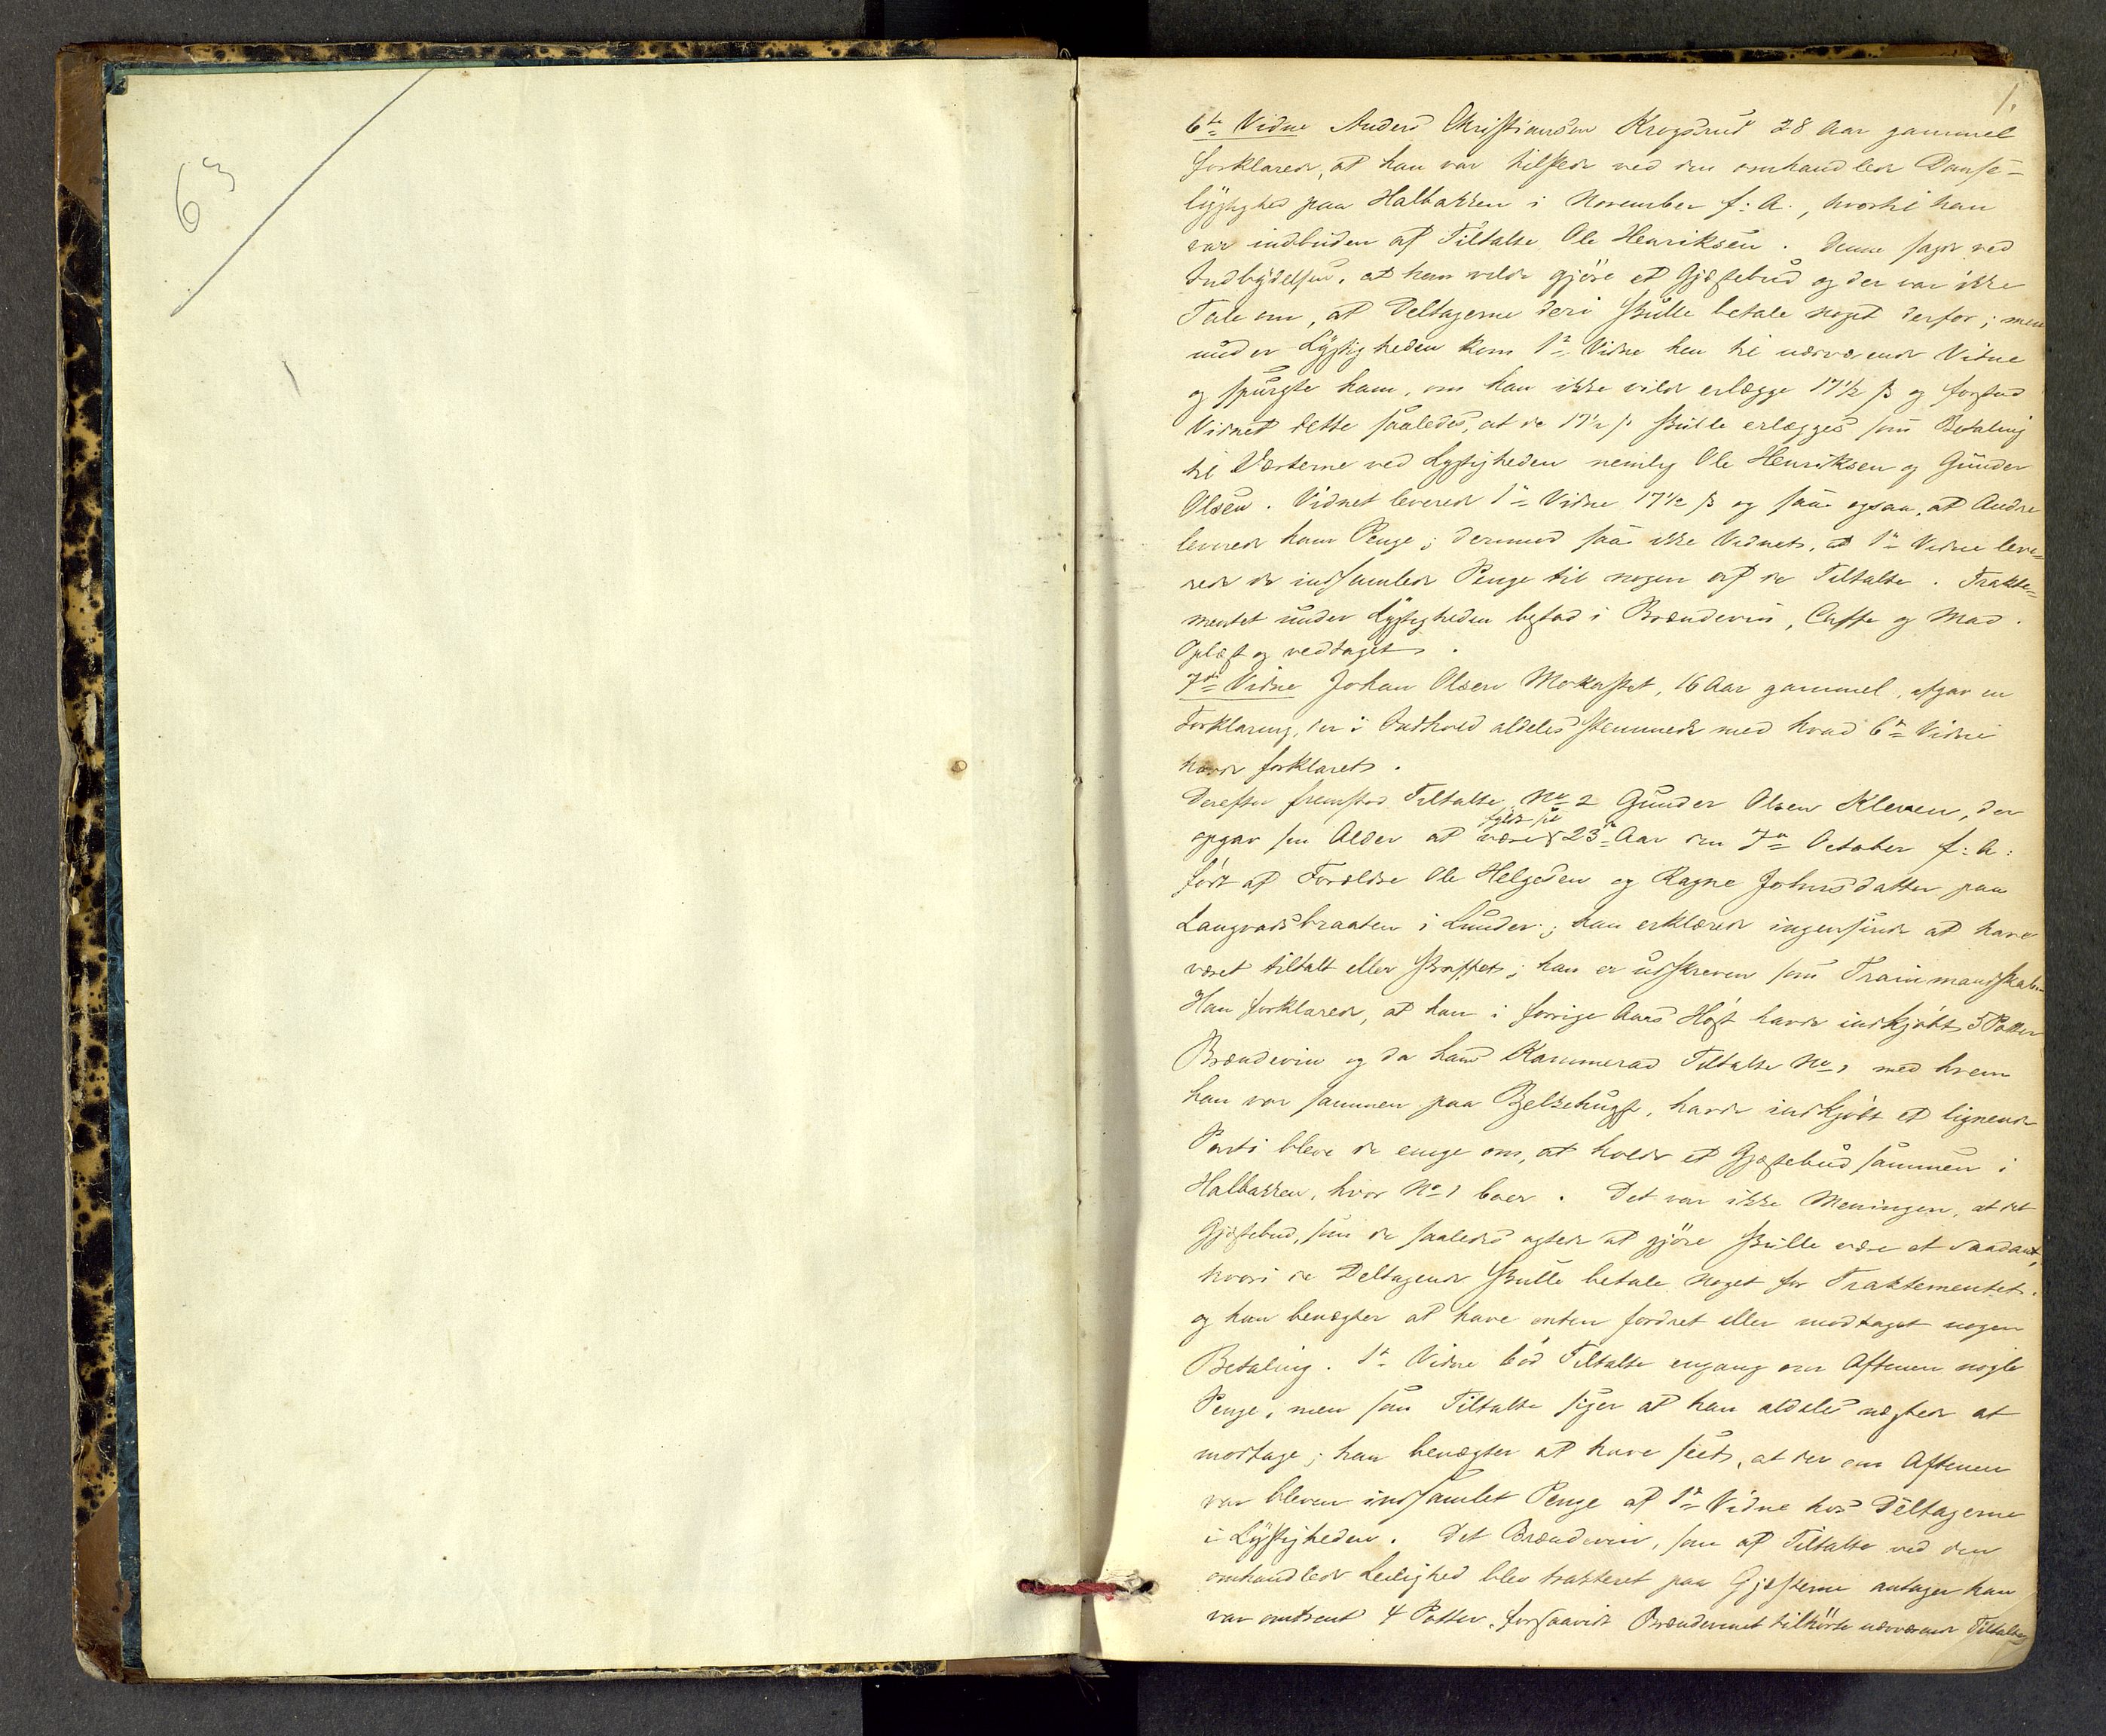 63
1.
6te Vidne Anders Christiansen Krogsrud 28 Aar gammel
forklarede, at han var tilstede ved den omhandlede Danse-
lystighed paa Halbakken i November f: A., hvortil han
var indbuden af Tiltalte Ole Henriksen. Denne sagde ved
Indbydelsen, at han vilde gjöre et Gjæstebud og der var ikke
Tale om, at Deltagerne deri skulle betale noget derfor; men
under Lystigheden kom 1ste Vidne hen til nærværende Vidne
og spurgte ham, om han ikke vilde erlægge 17 1/2 ß og forstod
Vidnet dette saaledes, at de 17 1/2 ß skulle erlægges som Betaling
til Værterne ved Lystigheden nemlig Ole Henriksen og Gunder
Olsen. Vidnet leverede 1ste Vidne 17 1/2 ß og saae ogsaa, at Andre
leverede ham Penge; derimod saae ikke Vidnet, at 1ste Vidne leve-
rede de indsamlede Penge til nogen af de Tiltalte. Trakte-
mentet under Lystigheden bestod i Brændeviin, Caffe og Mad.
Oplæst og vedtaget.
7de Vidne Johan Olsen 16 Aar gammel, afgav en
Forklaring, der i Indhold aldeles stemmede med hvad 6te Vidne
havde forklaret.
Derefter fremstod Tiltalte No 2 Gunder Olsen Kleven, der
fyldt sit
opgav sin Alder at være 23de Aar den 7de October f: A:
født af Forældre Ole Helgesen og Ragne Johnsdatter paa
Langvadsbraaten i Lunder; han erklærede ingensinde at have
været tiltalt eller straffet; han er udskreven som Trainmandskab.
Han forklarede, at han i forrige Aars Høst havde indkjøbt 5 Potter
Brændeviin og da hans Kammerad Tiltalte No 1 med hvem
han var sammen paa havde indkjøbt et lignende
Parti bleve de enige om, at holde et Gjæstebud sammen i
Halbakken, hvor No 1 boer. Det var ikke Meningen, at det
Gjæstebud, som de saaledes agtede at gjöre skulle være et saadant,
hvori de Deltagende skulle betale Noget for Traktementet,
og han benægter at have enten fordret eller modtaget nogen
Betaling. 1ste Vidne bød Tiltalte engang om Aftenen nogle
Penge, men som Tiltalte siger at han aldeles nægtede at
modtage; han benægter at have seet, at der om Aftenen
var bleven indsamlet Penge af 1ste Vidne hos Deltagerne
i Lystigheden. Det Brændeviin, som af Tiltalte ved den
omhandlede Leilighed blev trakteret paa Gjæsterne antager han
var omtrent 4 Potter, forsaavidt Brændevinet tilhörte nærværende Tiltalte